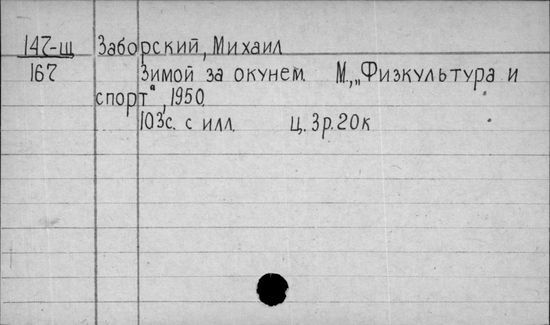 147-щ Заборский, Михаил
167 Зимой за окунем. М., „Физкультура и
спорт“, 1950.
103с. с илл. Ц. 3р. 20к